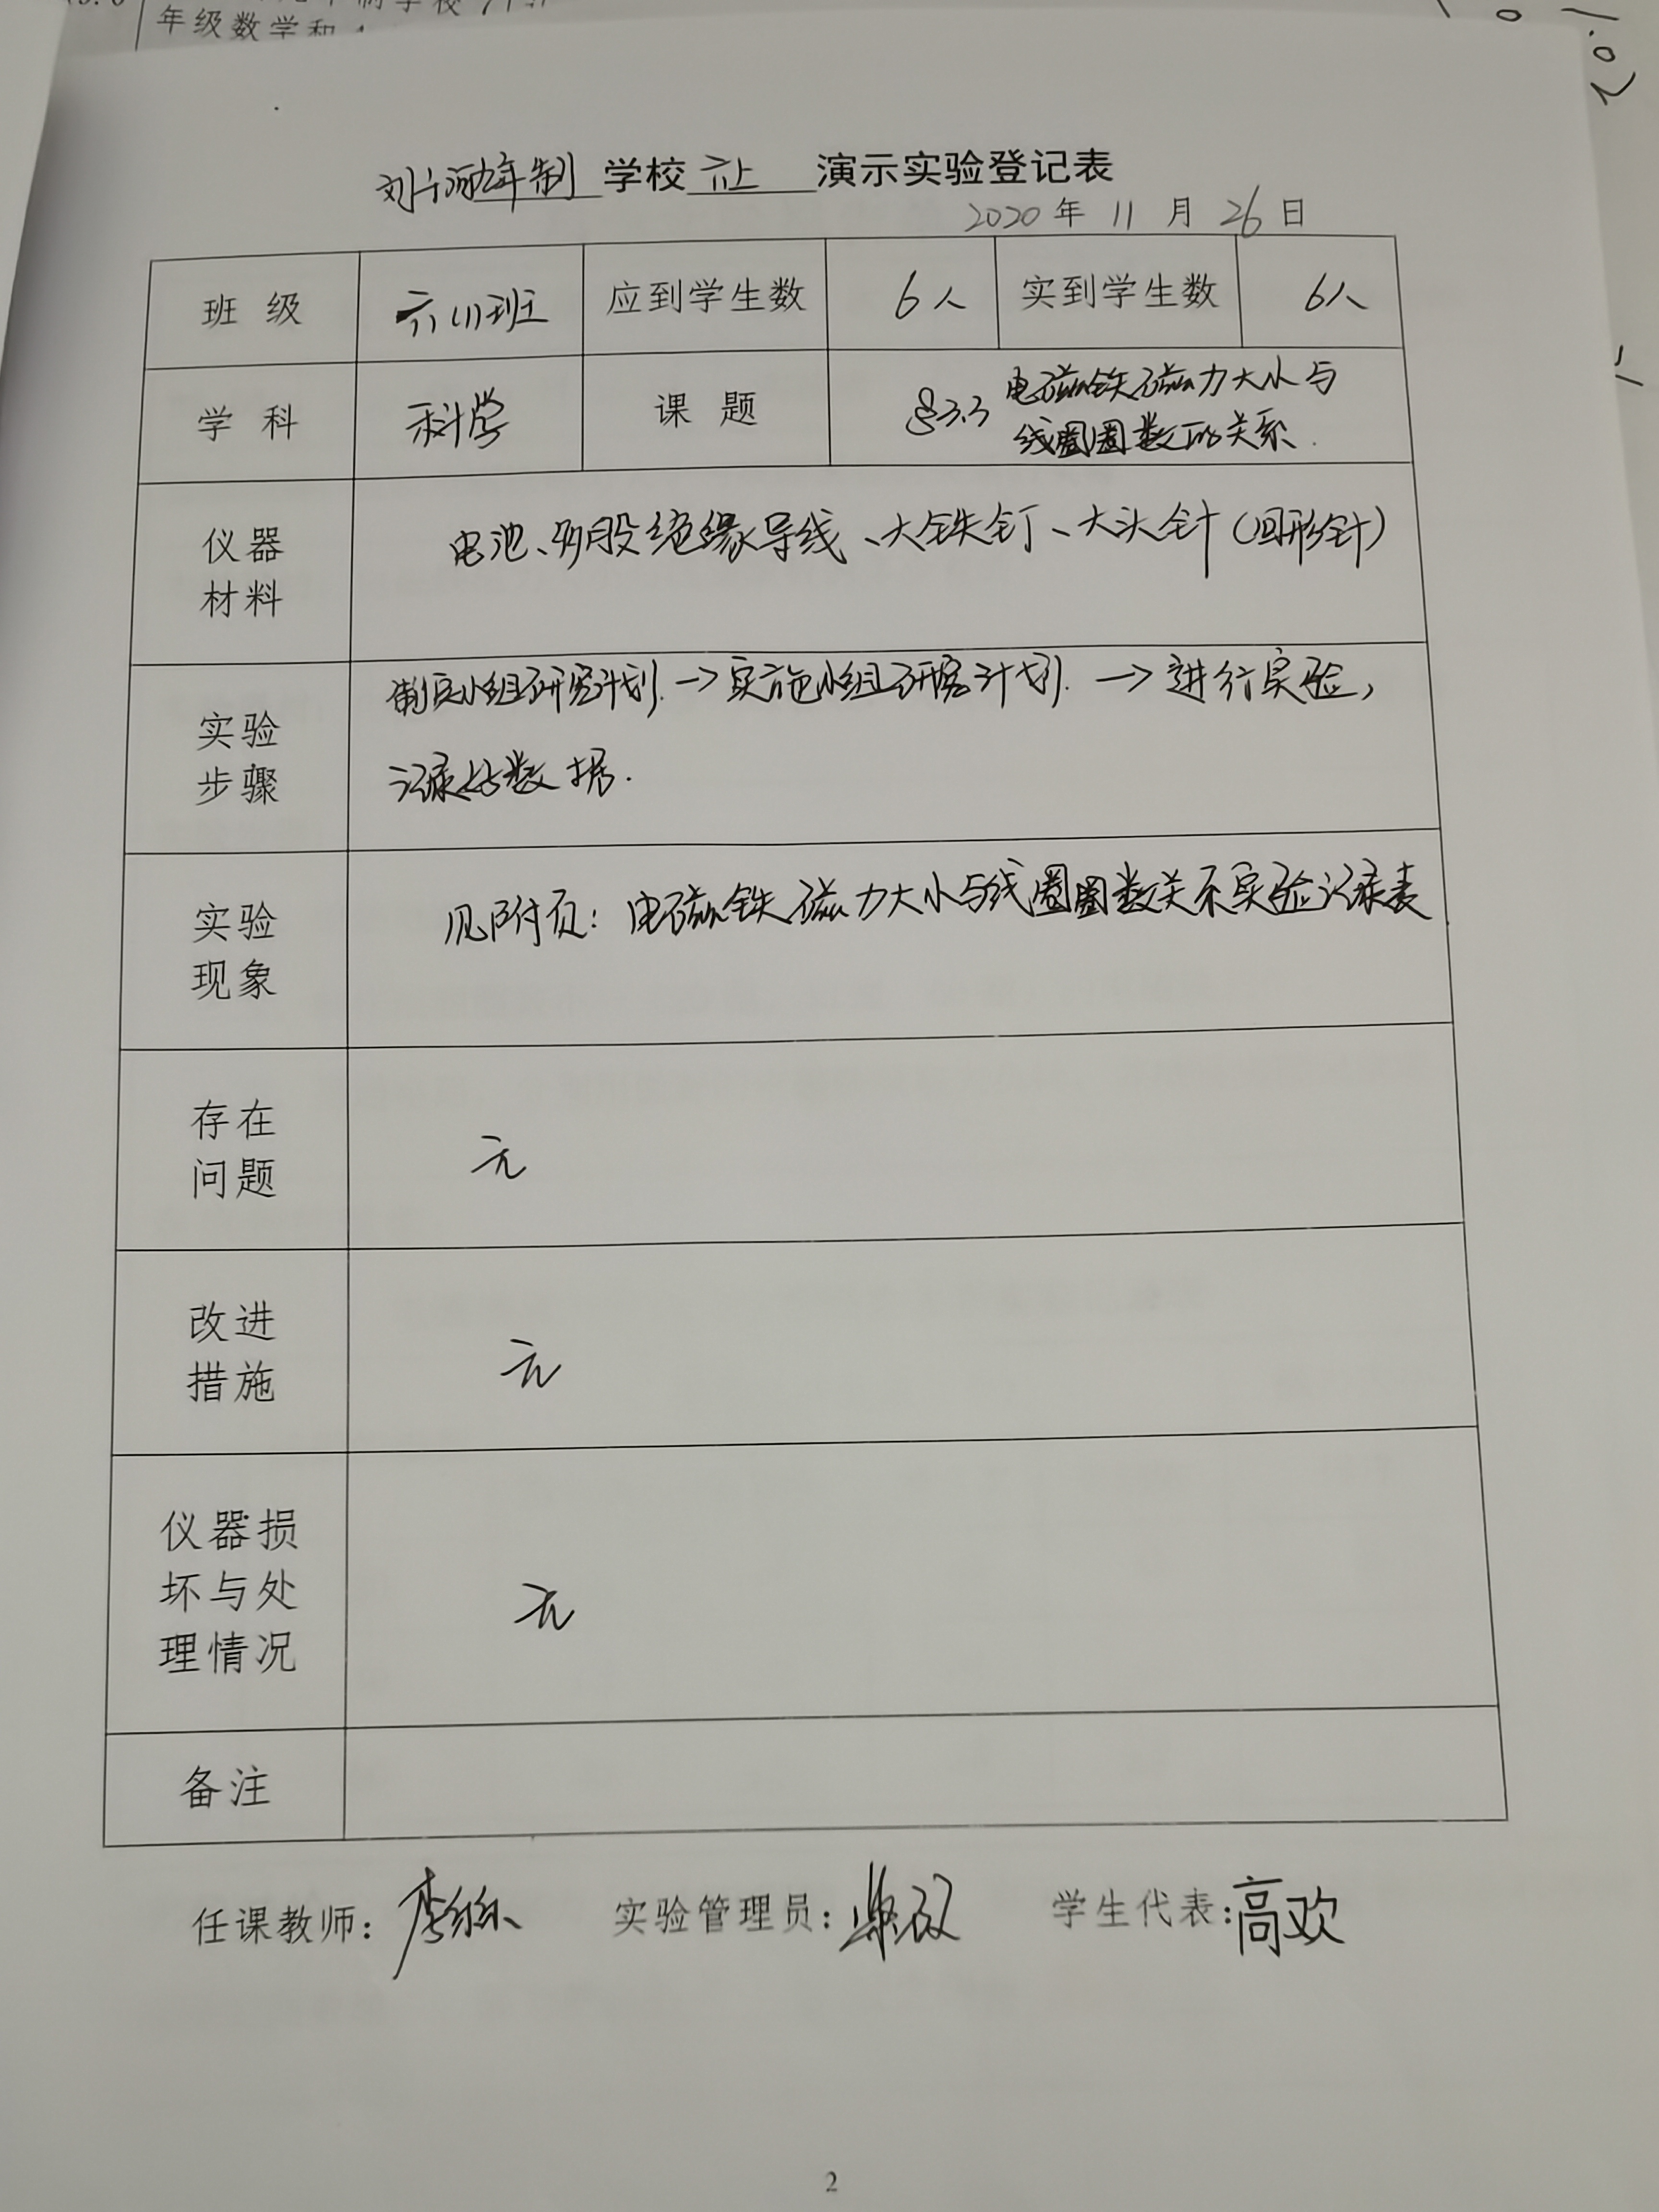 年级数学和
九年制 学校 六上 演示实验登记表
2020 年 11 月 26 日
班 级 六(1)班 应到学生数 6人 实到学生数 6人
学 科 科学 课 题 §3.3 电磁铁磁力大小与
线圈圈数的关系.
仪器
材料
电池、多股绝缘导线、大铁钉、大头针(回形针)
实验
步骤
制定小组研究计划.→实施小组研究计划.→进行实验,
记录好数据.
实验
现象
见附页:电磁铁磁力大小与线圈圈数关系实验记录表
存在
问题
无
改进
措施
无
仪器损
坏与处
理情况
无
备注
任课教师: 实验管理员: 学生代表:高欢
2